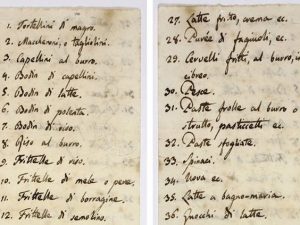 1. Tortellini di magro.
2. Maccheroni, o Tagliolini.
3. Capellini al burro.
4. Bodin di capellini.
5. Bodin di latte.
6. Bodin di polenta.
7. Bodin di riso.
8. Riso al burro.
9. Frittelle di riso.
10. Frittelle di mele o pere.
11. Frittelle di borragine.
12. Frittelle di semolino.
27. Latte fritto, crema ec.
28. Purée di fagiuoli, ec.
29. Cervelli fritti, al burro, in
ebreo.
30. Pesce.
31. Paste frolle al burro o
strutto, pasticcetti ec.
32. Paste sfogliate.
33. Spinaci.
34. Uova ec.
35. Latte a bagno-maria.
36. Gnocchi di latte.